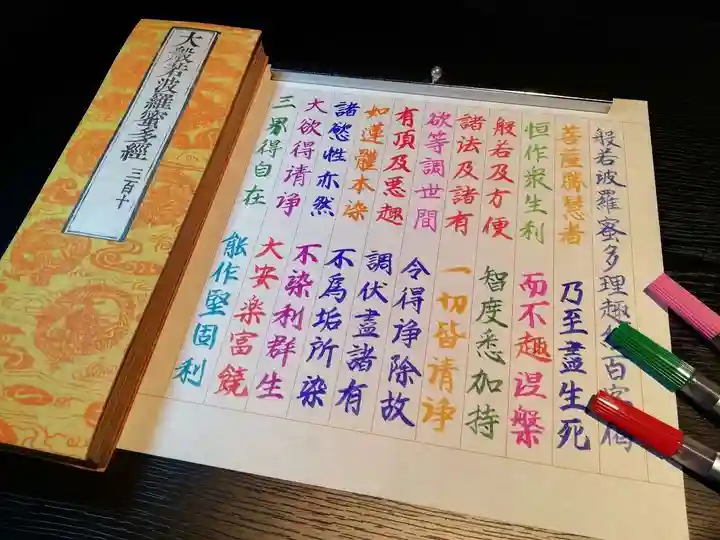 大般若波羅蜜多經 三百十
般若波羅蜜多理趣経百字偈
菩薩勝慧者 乃至盡生死
恒作衆生利 而不趣涅槃
般若及方便 智度悉加持
諸法及諸有 一切皆清浄
欲等調世間 令得浄除故
有頂及悪趣 調伏盡諸有
如蓮體本染 不為垢所染
諸慾性亦然 不染利群生
大欲得清浄 大安楽富饒
三界得自在 能作堅固利